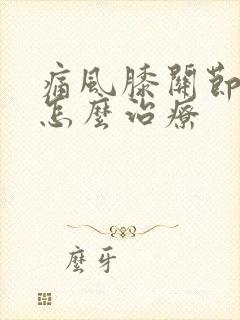 痛风膝關節
怎麼治療
麼牙